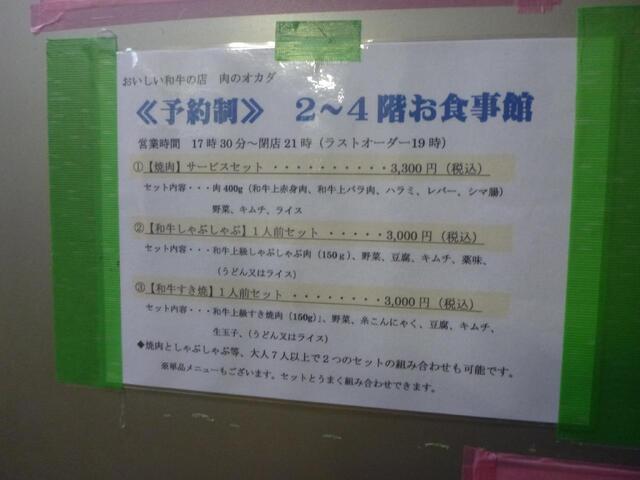 おいしい和牛の店 肉のオカダ
≪予約制≫ 2～4階お食事館
営業時間 17時30分～閉店21時（ラストオーダー19時）
①【焼肉】サービスセット ・・・・・・・・・・3,300円（税込）
セット内容・・・肉400g（和牛上赤身肉、和牛上バラ肉、ハラミ、レバー、シマ腸）
野菜、キムチ、ライス
②【和牛しゃぶしゃぶ】1人前セット ・・・・・3,000円（税込）
セット内容・・・和牛上級しゃぶしゃぶ肉（150g）、野菜、豆腐、キムチ、薬味、
（うどん又はライス）
③【和牛すき焼】1人前セット ・・・・・・・・3,000円（税込）
セット内容・・・和牛上級すき焼肉（150g）」、野菜、糸こんにゃく、豆腐、キムチ、
生玉子、（うどん又はライス）
◆焼肉としゃぶしゃぶ等、大人7人以上で2つのセットの組み合わせも可能です。
※単品メニューもございます。セットとうまく組み合わせできます。